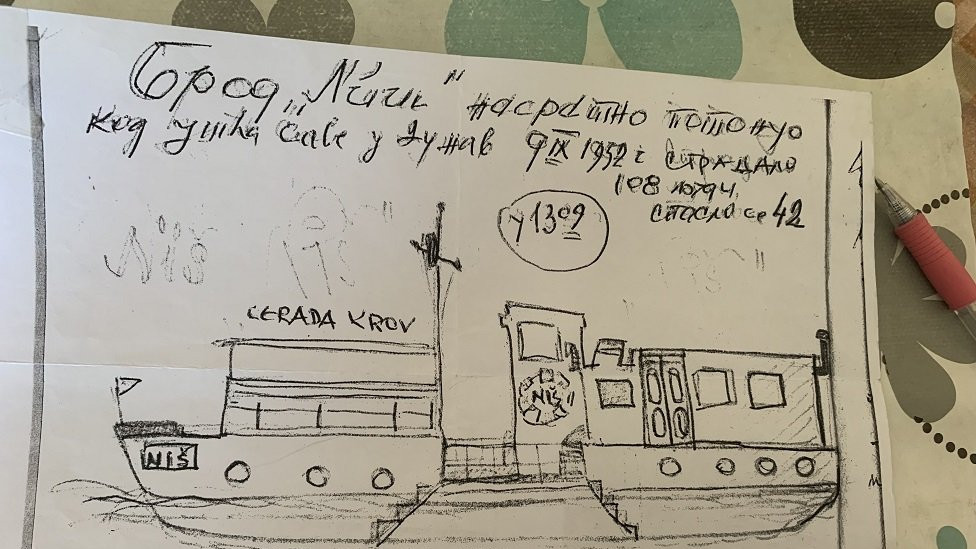 Брод „Ниш" потонуо
код ушћа Саве у Дунав 9 IX 1952 г СТРАДАЛО
108 људи.
спасло се 42
у 13 09
Niš
CERADA KROV
NIŠ
NIŠ